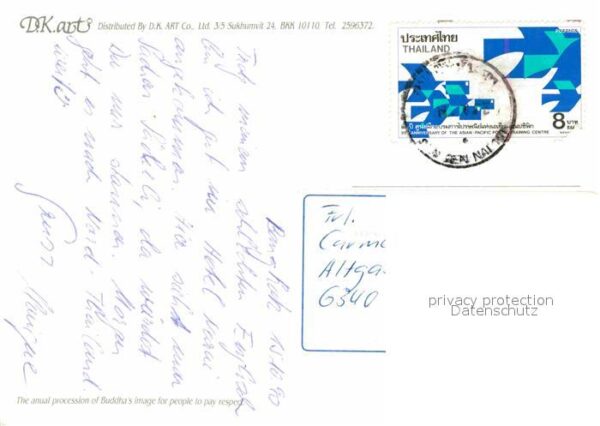 D.K. art's Distributed By D.K. ART Co., Ltd. 3/5 Sukhumvit 24, BKK 10110 Tel. 2596372.
ประเทศไทย
THAILAND
8 บาท
ANNIVERSARY OF THE ASIAN-PACIFIC POSTAL TRAINING CENTRE
Bangkok 15.10.90
Trotz meinem Englisch
bin ich gut im Hotel Narai
angekommen. Hier sieht man
Du nur staunen. Morgen
geht es nach Nord-Thailand
weiter
Gruss
Monique
Frl.
Carme
Altga
6340
privacy protection
Datenschutz
The anual procession of Buddha's image for people to pay respect